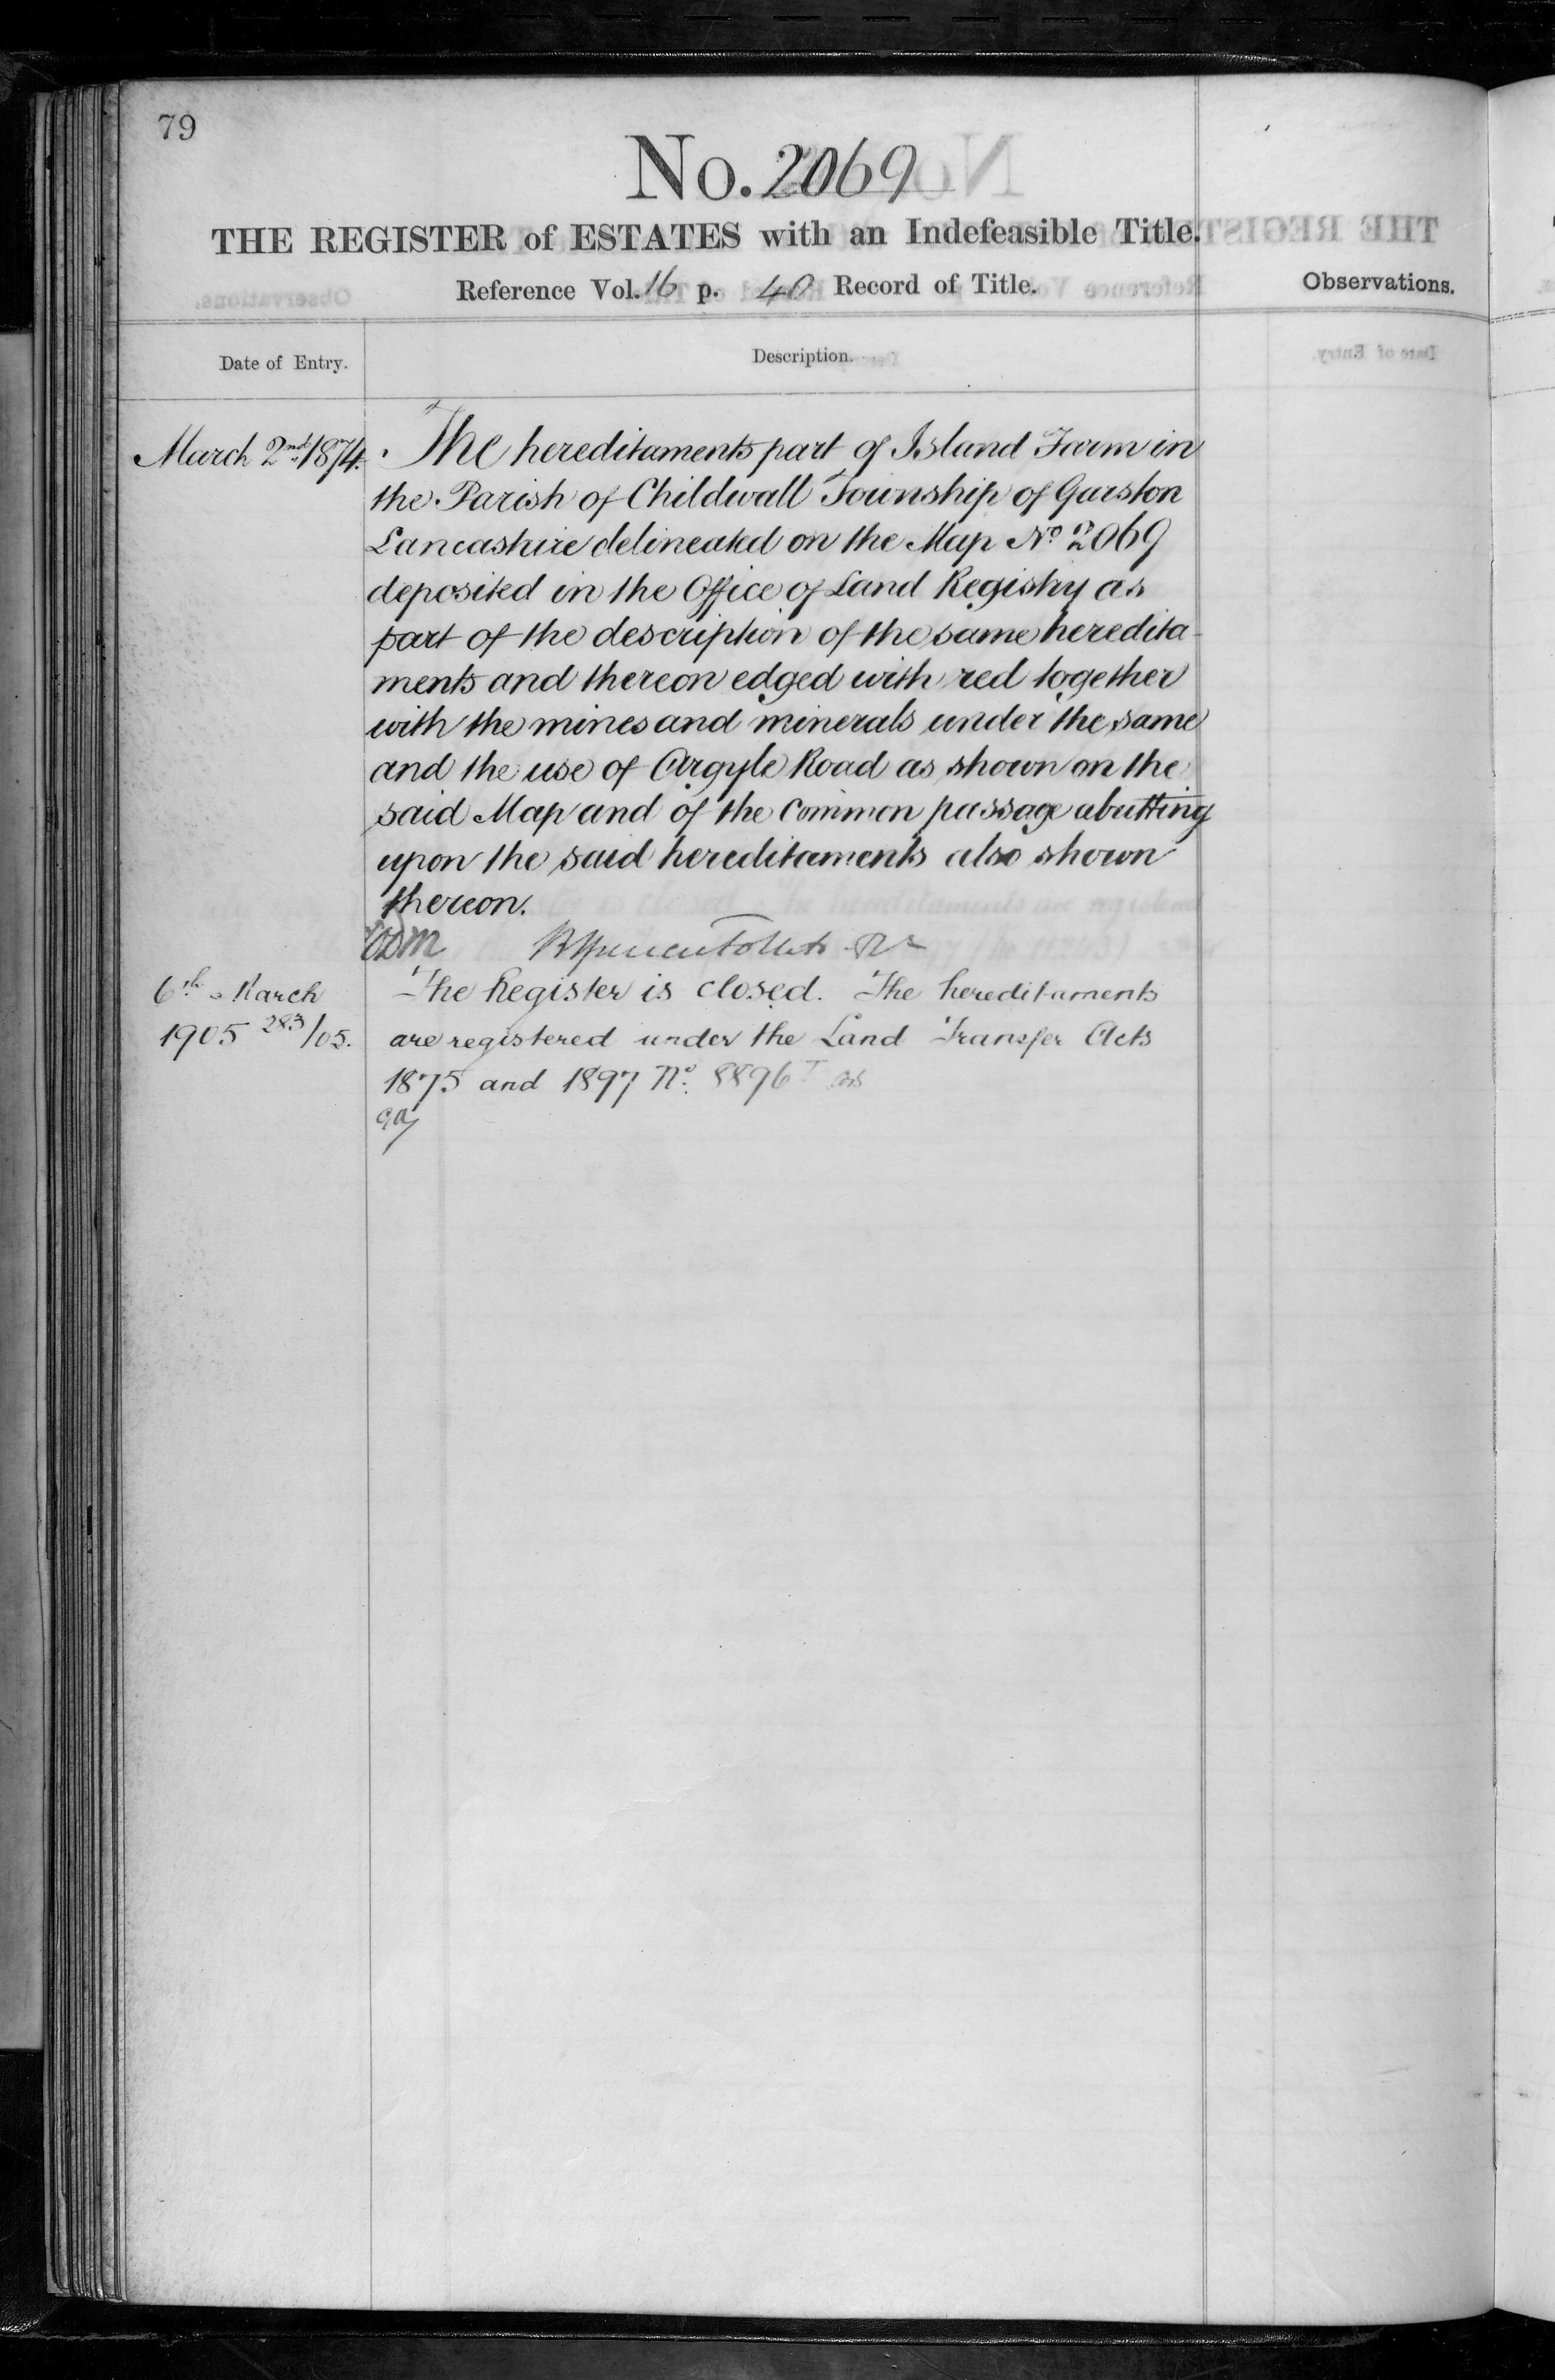 79
No. 2069
THE REGISTER of ESTATES with an Indefeasible Title.
Reference Vol. 16 p. 40 Record of Title.
Observations.
Date of Entry.
Description.
March 2nd 1874.
The hereditaments part of Island Farm in
the Parish of Childwall Township of Garston
Lancashire delineated on the Map No 2069
deposited in the Office of Land Registry as
part of the description of the same heredita-
ments and thereon edged with red together
with the mines and minerals under the same
and the use of Argyle Road as shown on the
said Map and of the common passage abutting
upon the said hereditaments also shown
thereon.
6th March
1905 283/05.
The Register is closed. The hereditaments
are registered under the Land Transfer Acts
1875 and 1897 No. 8896